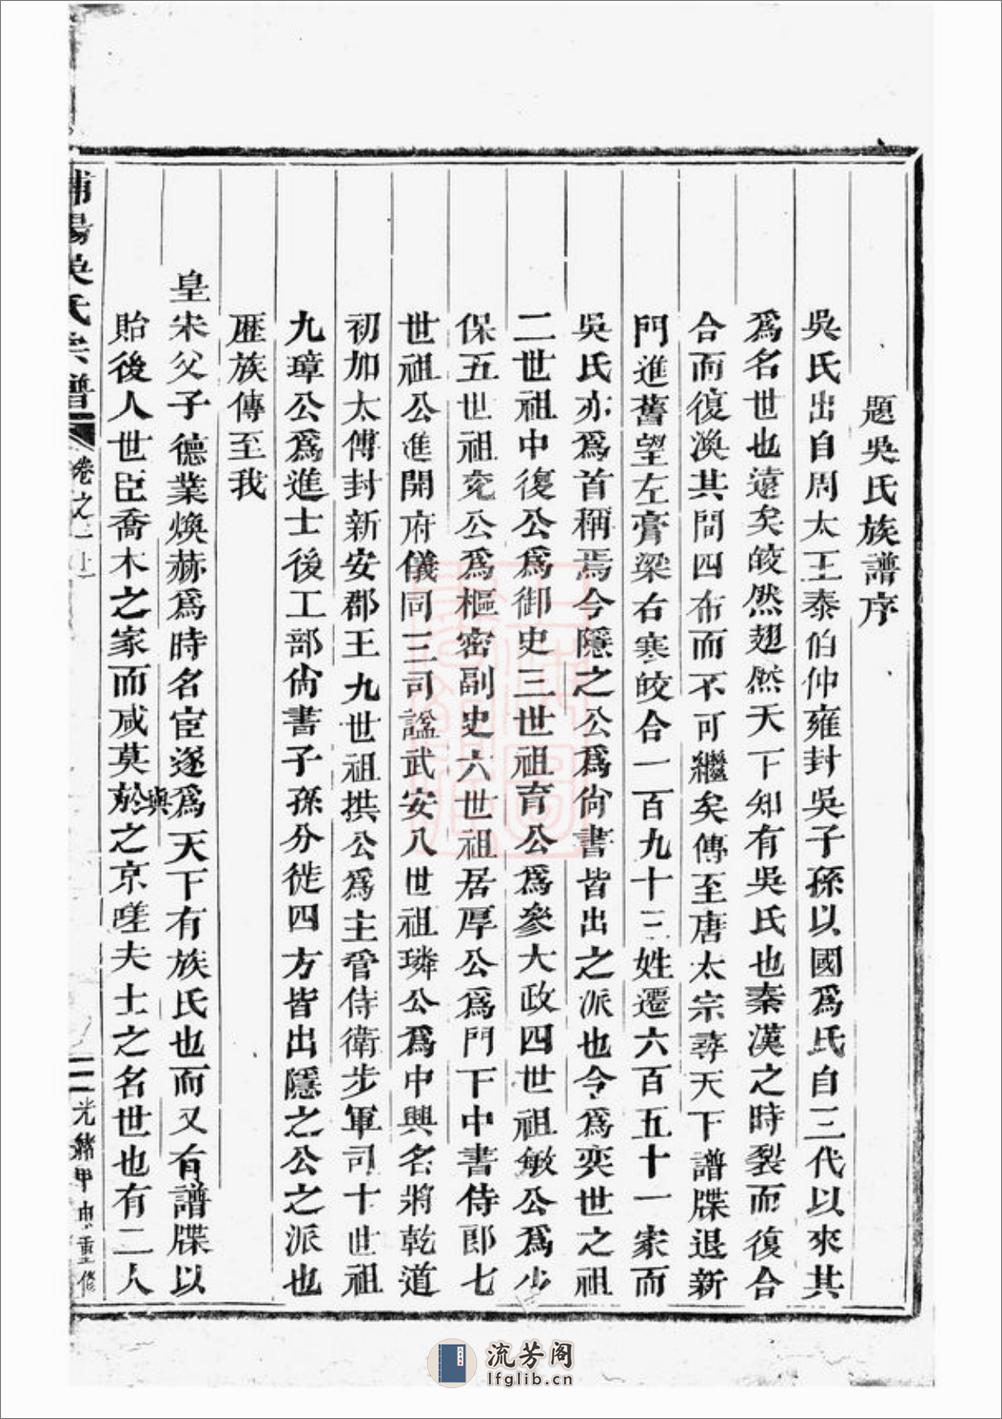 題吳氏族譜序
吳氏出自周太王泰伯仲雍封吳子孫以國爲氏自三代以來其
爲名世也遠矣皎然翅然天下知有吳氏也秦漢之時裂而復合
合而復渙其間四布而不可繼矣傳至唐太宗尋天下譜牒退新
門進舊望左膏梁右寒皎合一百九十三姓遷六百五十一家而
吳氏亦爲首稱焉今隱之公爲尙書皆出之派也今爲奕世之祖
二世祖中復公爲御史三世祖育公爲參大政四世祖敏公爲少
保五世祖兗公爲樞密副史六世祖居厚公爲門下中書侍郎七
世祖公進開府儀同三司諡武安八世祖璘公爲中興名將乾道
初加太傅封新安郡王九世祖拱公爲主管侍衛步軍司十世祖
九璋公爲進士後工部尙書子孫分徙四方皆出隱之公之派也
歷族傳至我
皇宋父子德業煥赫爲時名宦逐爲天下有族氏也而又有譜牒以
貽後人世臣喬木之家而咸莫於與之京嗟夫士之名世也有二人
浦陽吳氏宗譜 卷之二 光緒甲申重修
流芳阁
lfglib.cn